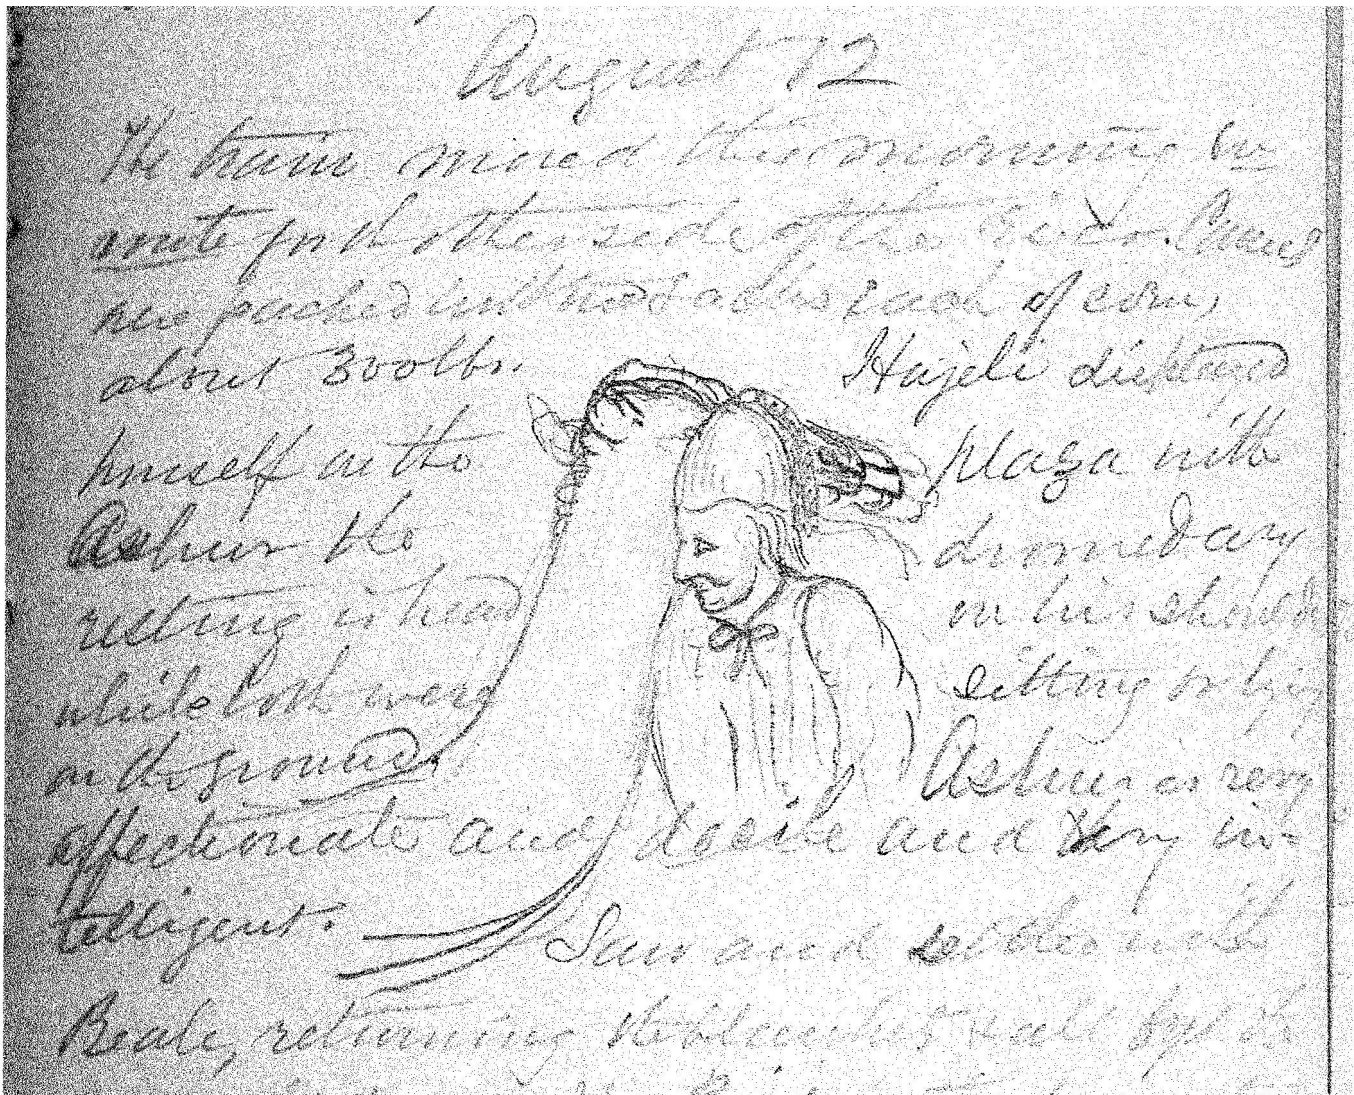 August 12
The train moved this morning En
route for th other side of the Camels
were packed with sack of corn,
about 300lbs. Hajeli
himself on the plaza with
Ashur the dromedary
resting is head on his shoulder
while both were sitting or lying
on the ground Ashur is very
affectionate and docile and very in-
telligent.
Saw and with
Beale, returning call